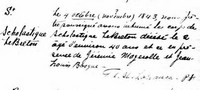 S.
Scholastique
LeBreton
le 4 octobre (novembre) 1843 nous prê-
tre soussigné avons inhumé le corps de
Scholastique LeBreton décédé le 2
âgé d'environ 40 ans et ce en pré-
sence de Jérémie Mogenelle et Jean
Louis